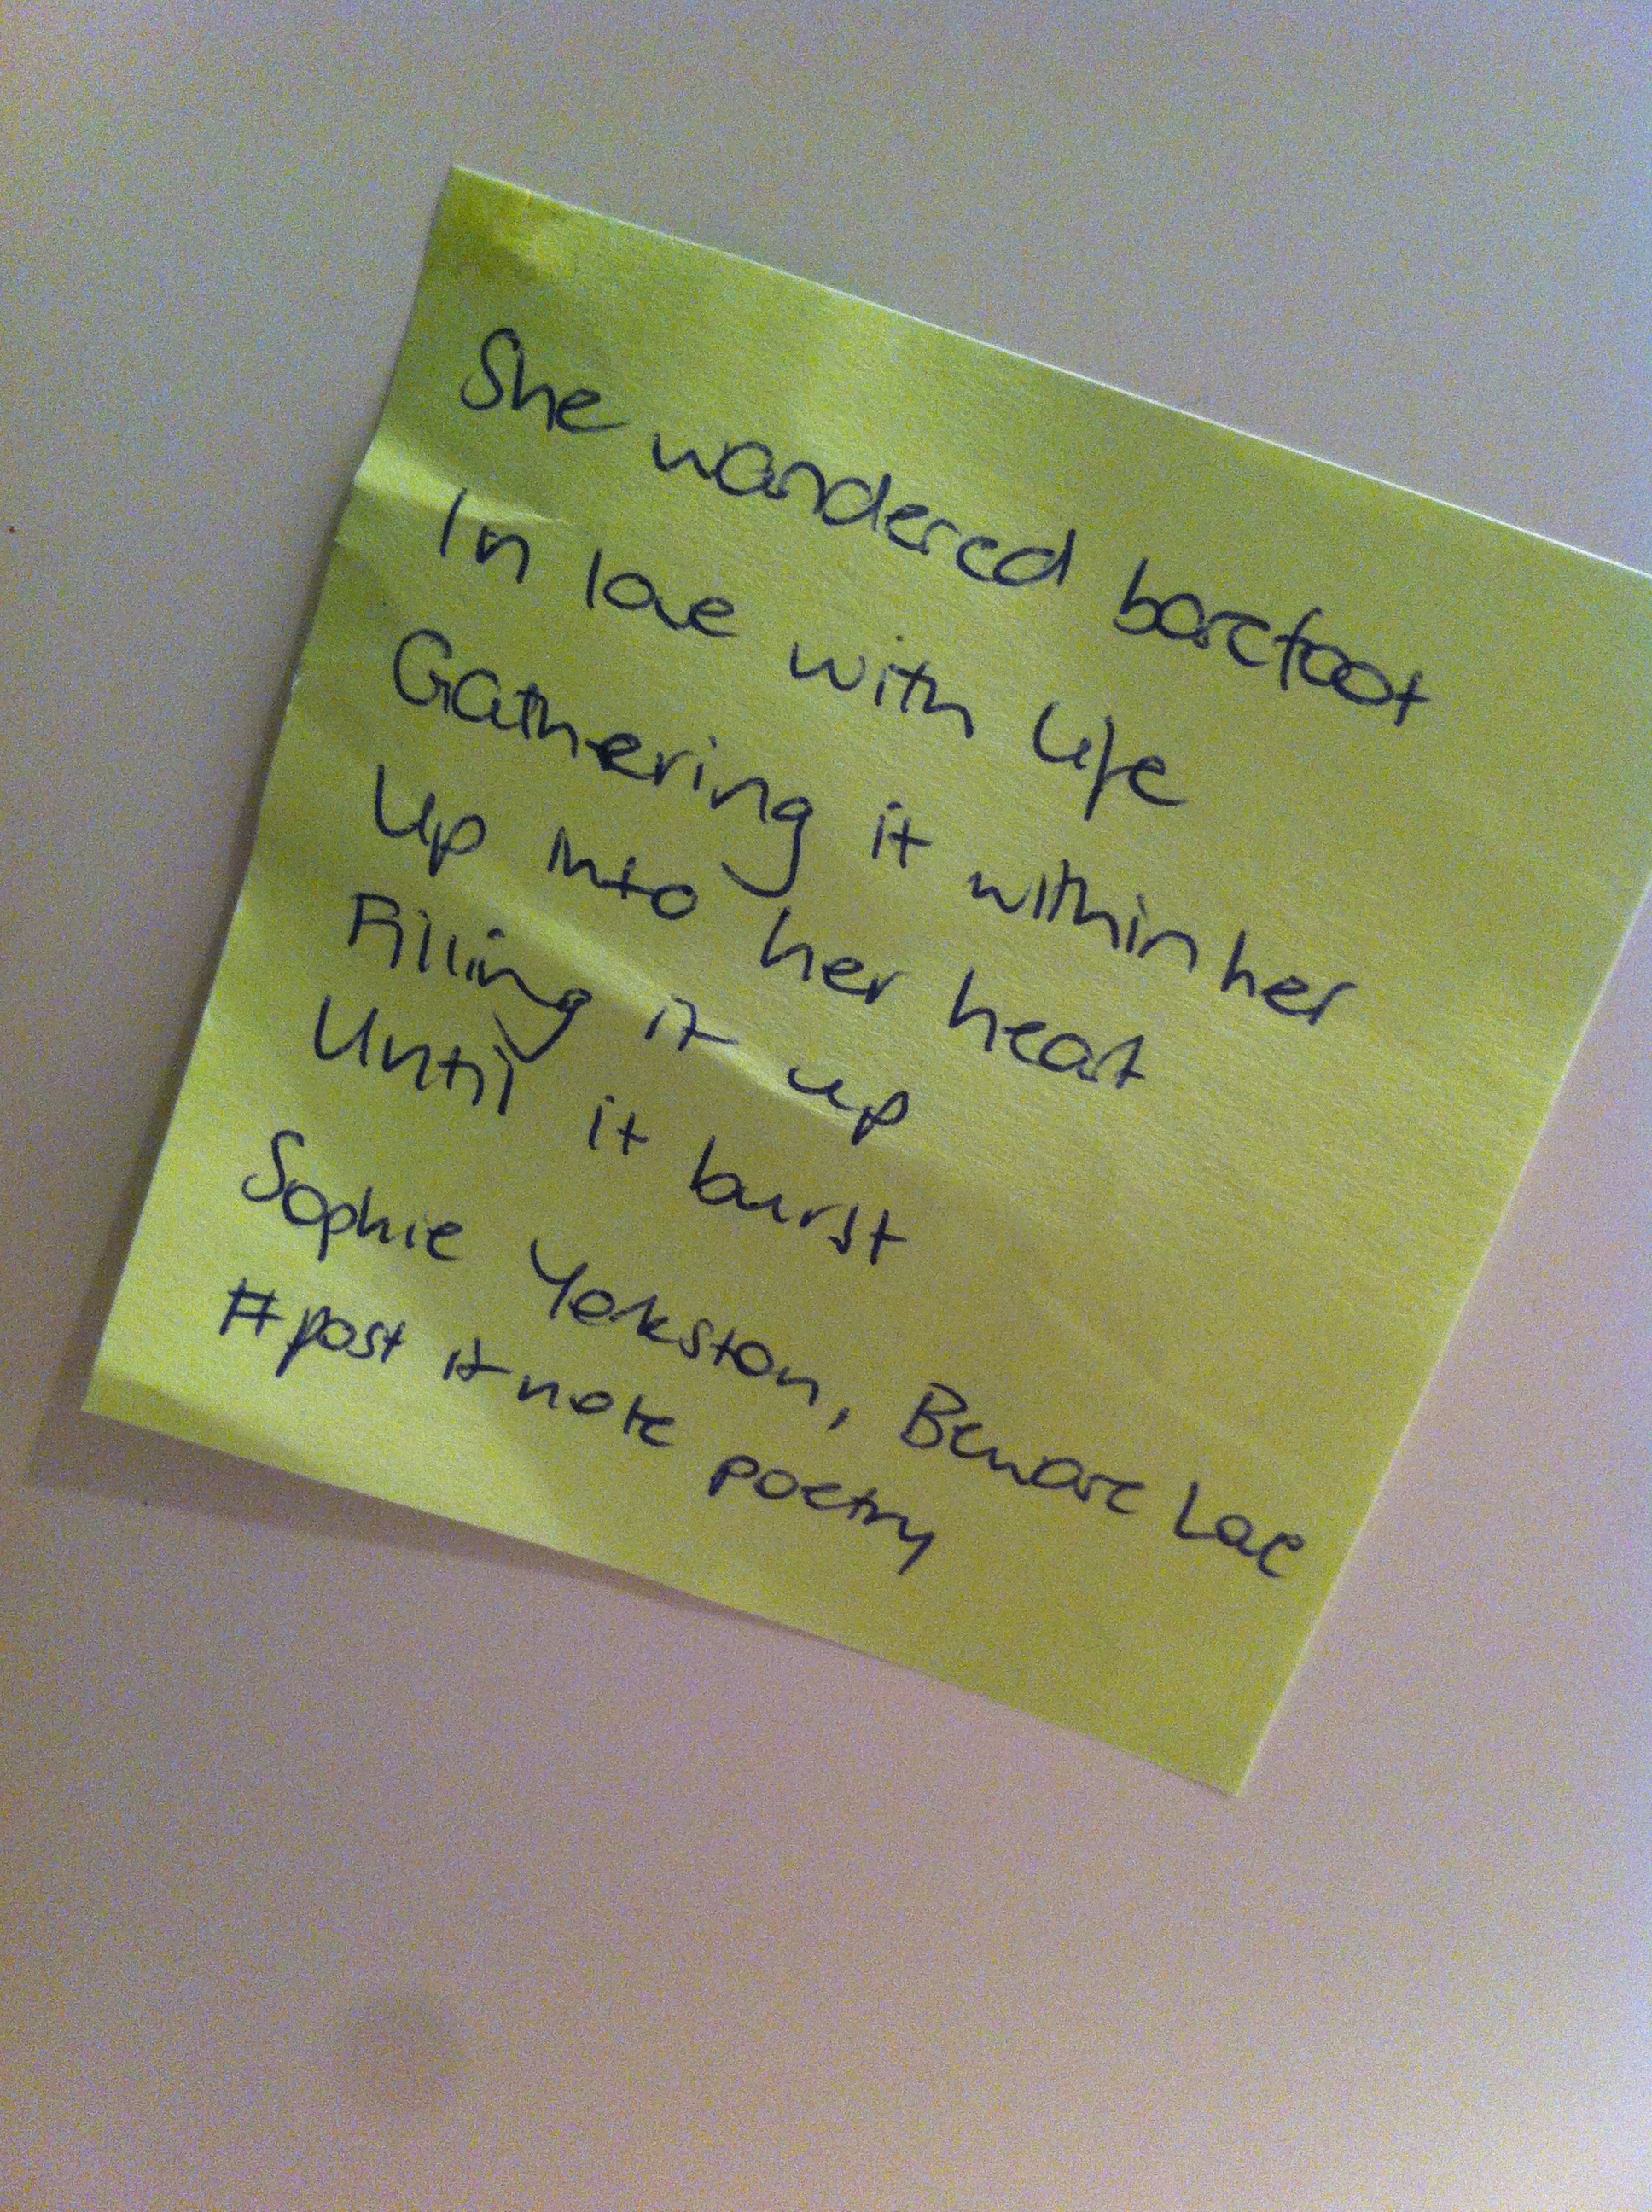 She wandered barefoot
In love with life
Gathering it within her
Up into her heart
Filling it up
Until it burst
Sophie Yorkston, Beware Love
#post it note poetry